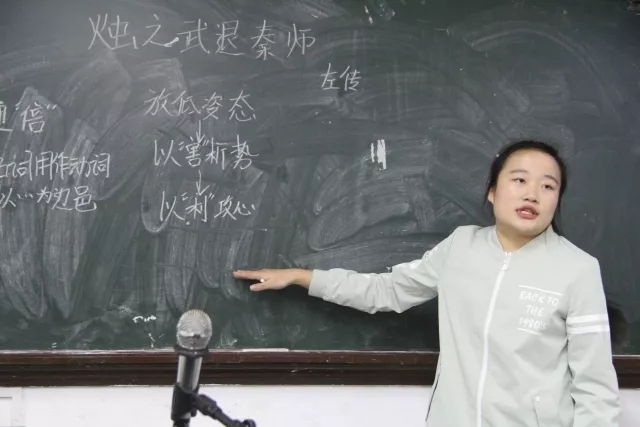 烛之武退秦师
左传
通"倍"
词用作动词
以…为边邑
放低姿态
以"害"析势
以"利"攻心
BACK TO
THE
1990'S